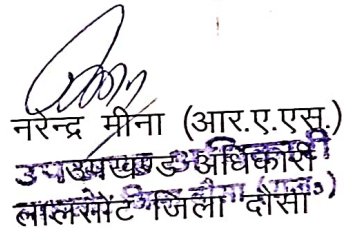 नरेन्द्र मीना (आर.ए.एस.)
उपखण्ड अधिकारी
लालसोट जिला दौसा